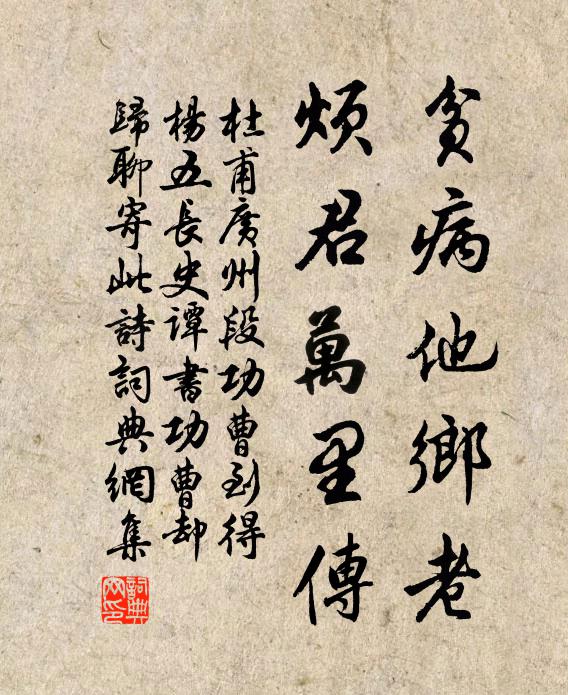 貧病他鄉老
煩君萬里傳
杜甫廣州段功曹到得
楊五長史譚書功曹却
歸聊寄此詩詞典網集
詞典
网印